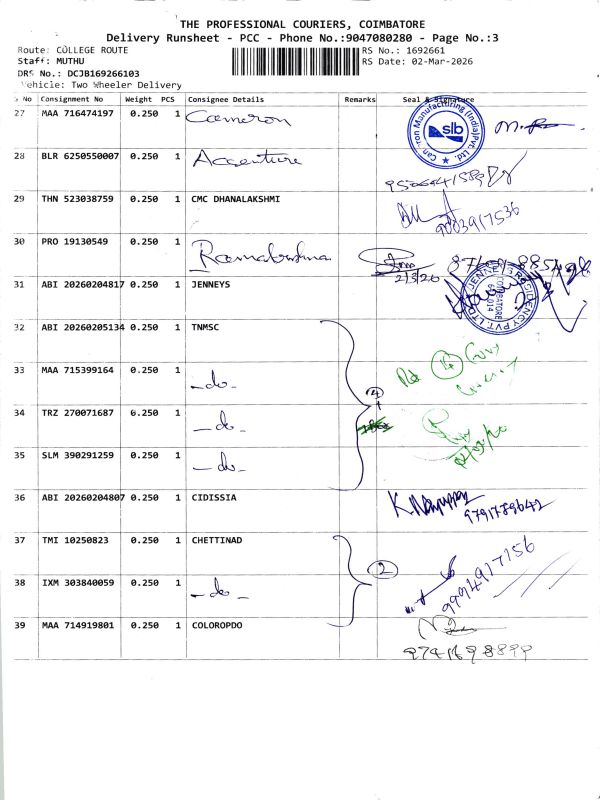 THE PROFESSIONAL COURIERS, COIMBATORE
Delivery Runsheet - PCC - Phone No.:9047080280 - Page No.:3
Route: COLLEGE ROUTE
RS No.: 1692661
Staff: MUTHU
RS Date: 02-Mar-2026
DRS No.: DCJB169266103
Vehicle: Two Wheeler Delivery
S No Consignment No Weight PCS Consignee Details Remarks Seal & Signature
27 MAA 716474197 0.250 1 Cameron
slb
28 BLR 6250550007 0.250 1 Accenture
29 THN 523038759 0.250 1 CMC DHANALAKSHMI
9003917536
30 PRO 19130549 0.250 1 Ramakrishna
2/3/20
31 ABI 20260204817 0.250 1 JENNEYS
JENNEYS RESIDENCY PVT. LTD.
COIMBATORE
641 014
32 ABI 20260205134 0.250 1 TNMSC
33 MAA 715399164 0.250 1 -do-
4
34 TRZ 270071687 0.250 1 -do-
35 SLM 390291259 0.250 1 -do-
36 ABI 20260204807 0.250 1 CIDISSIA
9791789642
37 TMI 10250823 0.250 1 CHETTINAD
2
9994917156
38 IXM 303840059 0.250 1 -do-
39 MAA 714919801 0.250 1 COLOROPDO